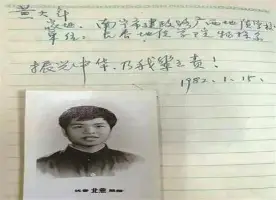 黄大年
地址: 南宁市建政路广西地质学校
单位: 长春地质学院物探系
振兴中华, 乃我辈之责!
1982. 1. 15.
长春 北照